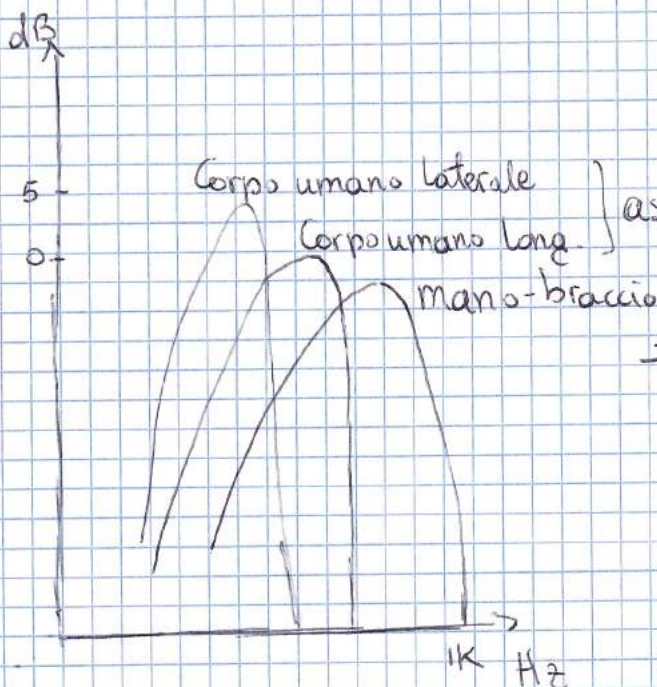 dB
5
Corpo umano laterale
0
Corpo umano long.
mano-braccio
1K Hz